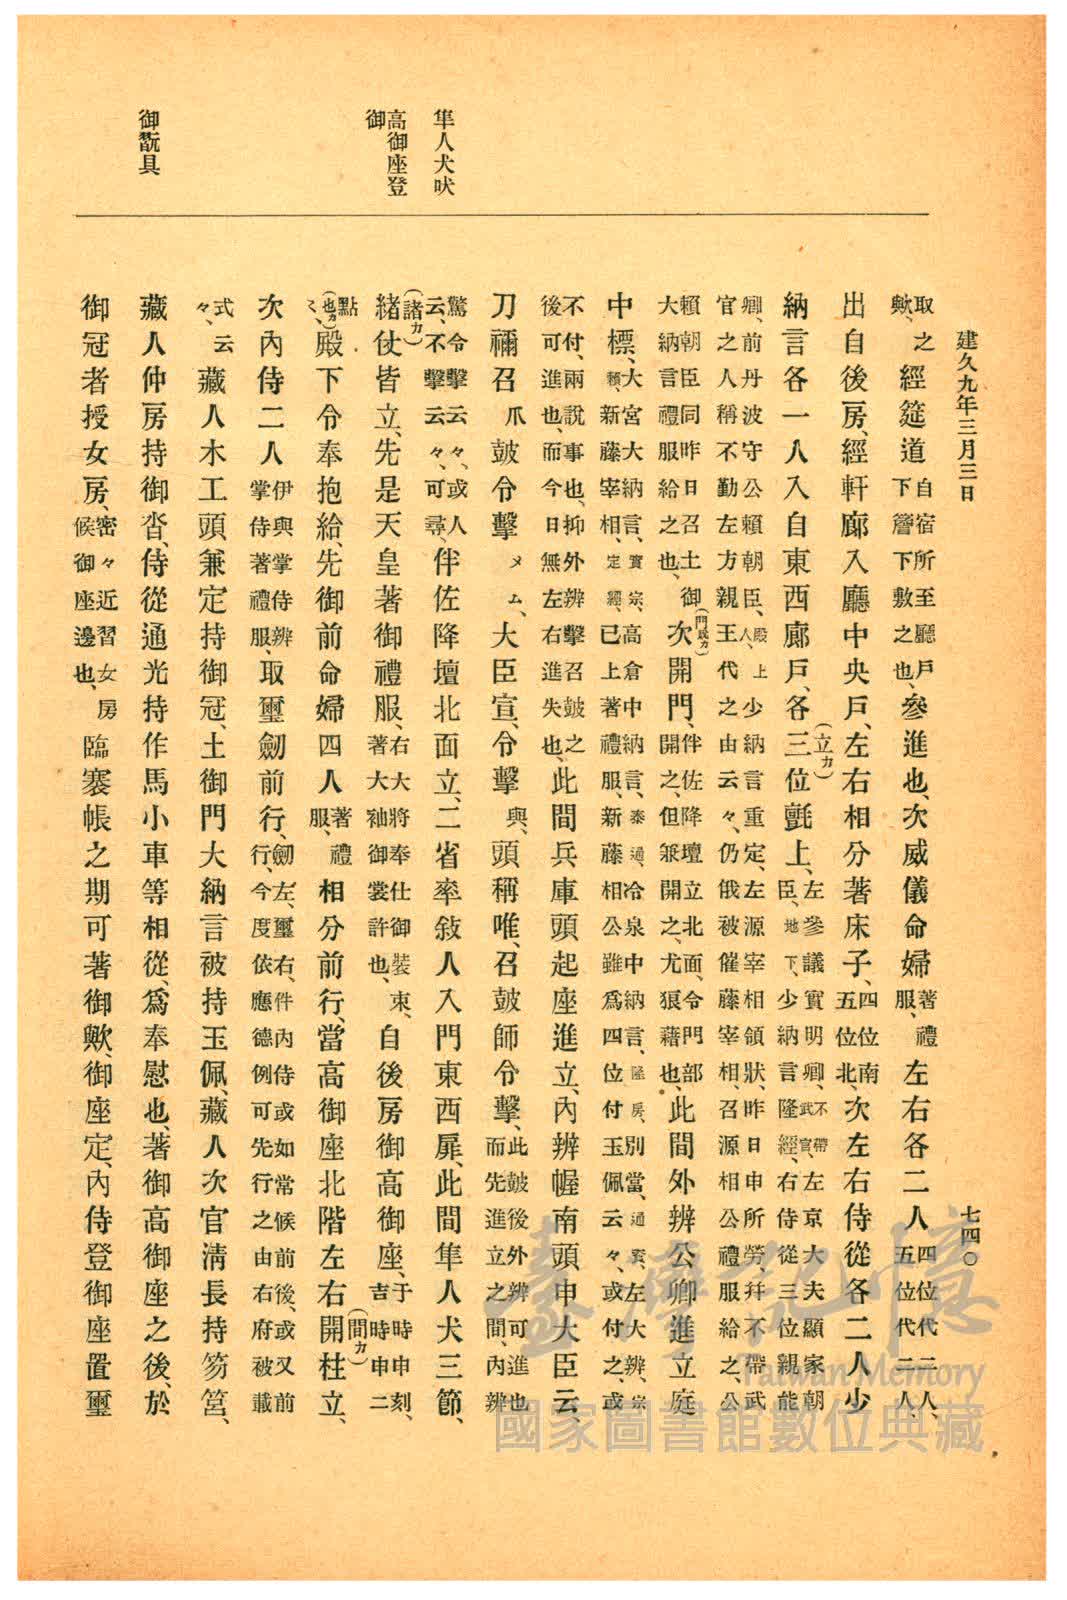 建久九年三月三日
七四〇
隼人犬吠
高御座登
御
御翫具
取之歟、經筵道自宿所至廳戶下簷下敷之也、參進也、次威儀命婦著禮服、左右各二人四位代二人、五位代二人、
出自後房、經軒廊入廳中央戶、左右相分著床子、四位南五位北、次左右侍從各二人少
納言各一人入自東西廊戶、各三(立カ)位氈上、左參議實明卿、不帶武官、左京大夫顯家朝臣、地下、少納言隆經、右侍從三位親能
卿、前丹波守公賴朝臣、殿上人、少納言重定、左源宰相領狀、昨日申所勞、幷不帶武官之人稱不勤左方親王代之由云々、仍俄被催藤宰相、召源相公禮服給之、公
賴朝臣同昨日召土御(門或カ)大納言禮服給之也、次開門、伴佐降壇立北面、令門部開之、但兼開之、尤狼藉也、此間外辨公卿進立庭
中標、大宮大納言、實宗、高倉中納言、泰通、冷泉中納言、隆房、別當、通資、左大辨、宗賴、新藤宰相、定經、已上著禮服、新藤相公雖爲四位付玉佩、云々、或付之、或
不付、兩說事也、抑外辨擊召鼓之後可進也、而今日無左右進失也、此間兵庫頭起座進立、內辨幄南頭、申大臣云、
刀禰召爪鼓令擊メム、大臣宣、令擊與、頭稱唯、召鼓師令擊、此鼓後外辨可進也而先進立之間、內辨
驚令擊云々、或人云、不擊云々、可尋、伴佐降壇北面立、二省率敍人入門東西扉、此間隼人犬三節、
緖(諸カ)仗皆立、先是天皇著御禮服、右大將奉仕御裝束、著大袖御裳許也、自後房御高御座、于時申刻、吉時申二
點(也カ)〻、殿下令奉抱給、先御前命婦四人著禮服、相分前行、當高御座北階左右開(間カ)柱立、
次內侍二人伊與掌侍辨掌侍著禮服、取璽劒前行、劒左、璽右、件內侍或如常候前後、或又前行、今度依應德例可先行之由右府被載
式云々、藏人木工頭兼定持御冠、土御門大納言被持玉佩、藏人次官淸長持笏筥、
藏人仲房持御沓、侍從通光持作馬小車等相從、爲奉慰也、著御高御座之後、於
御冠者授女房、密々近習女房候御座邊也、臨褰帳之期可著御歟、御座定、內侍登御座置璽
臺灣記憶
Taiwan Memory
國家圖書館數位典藏